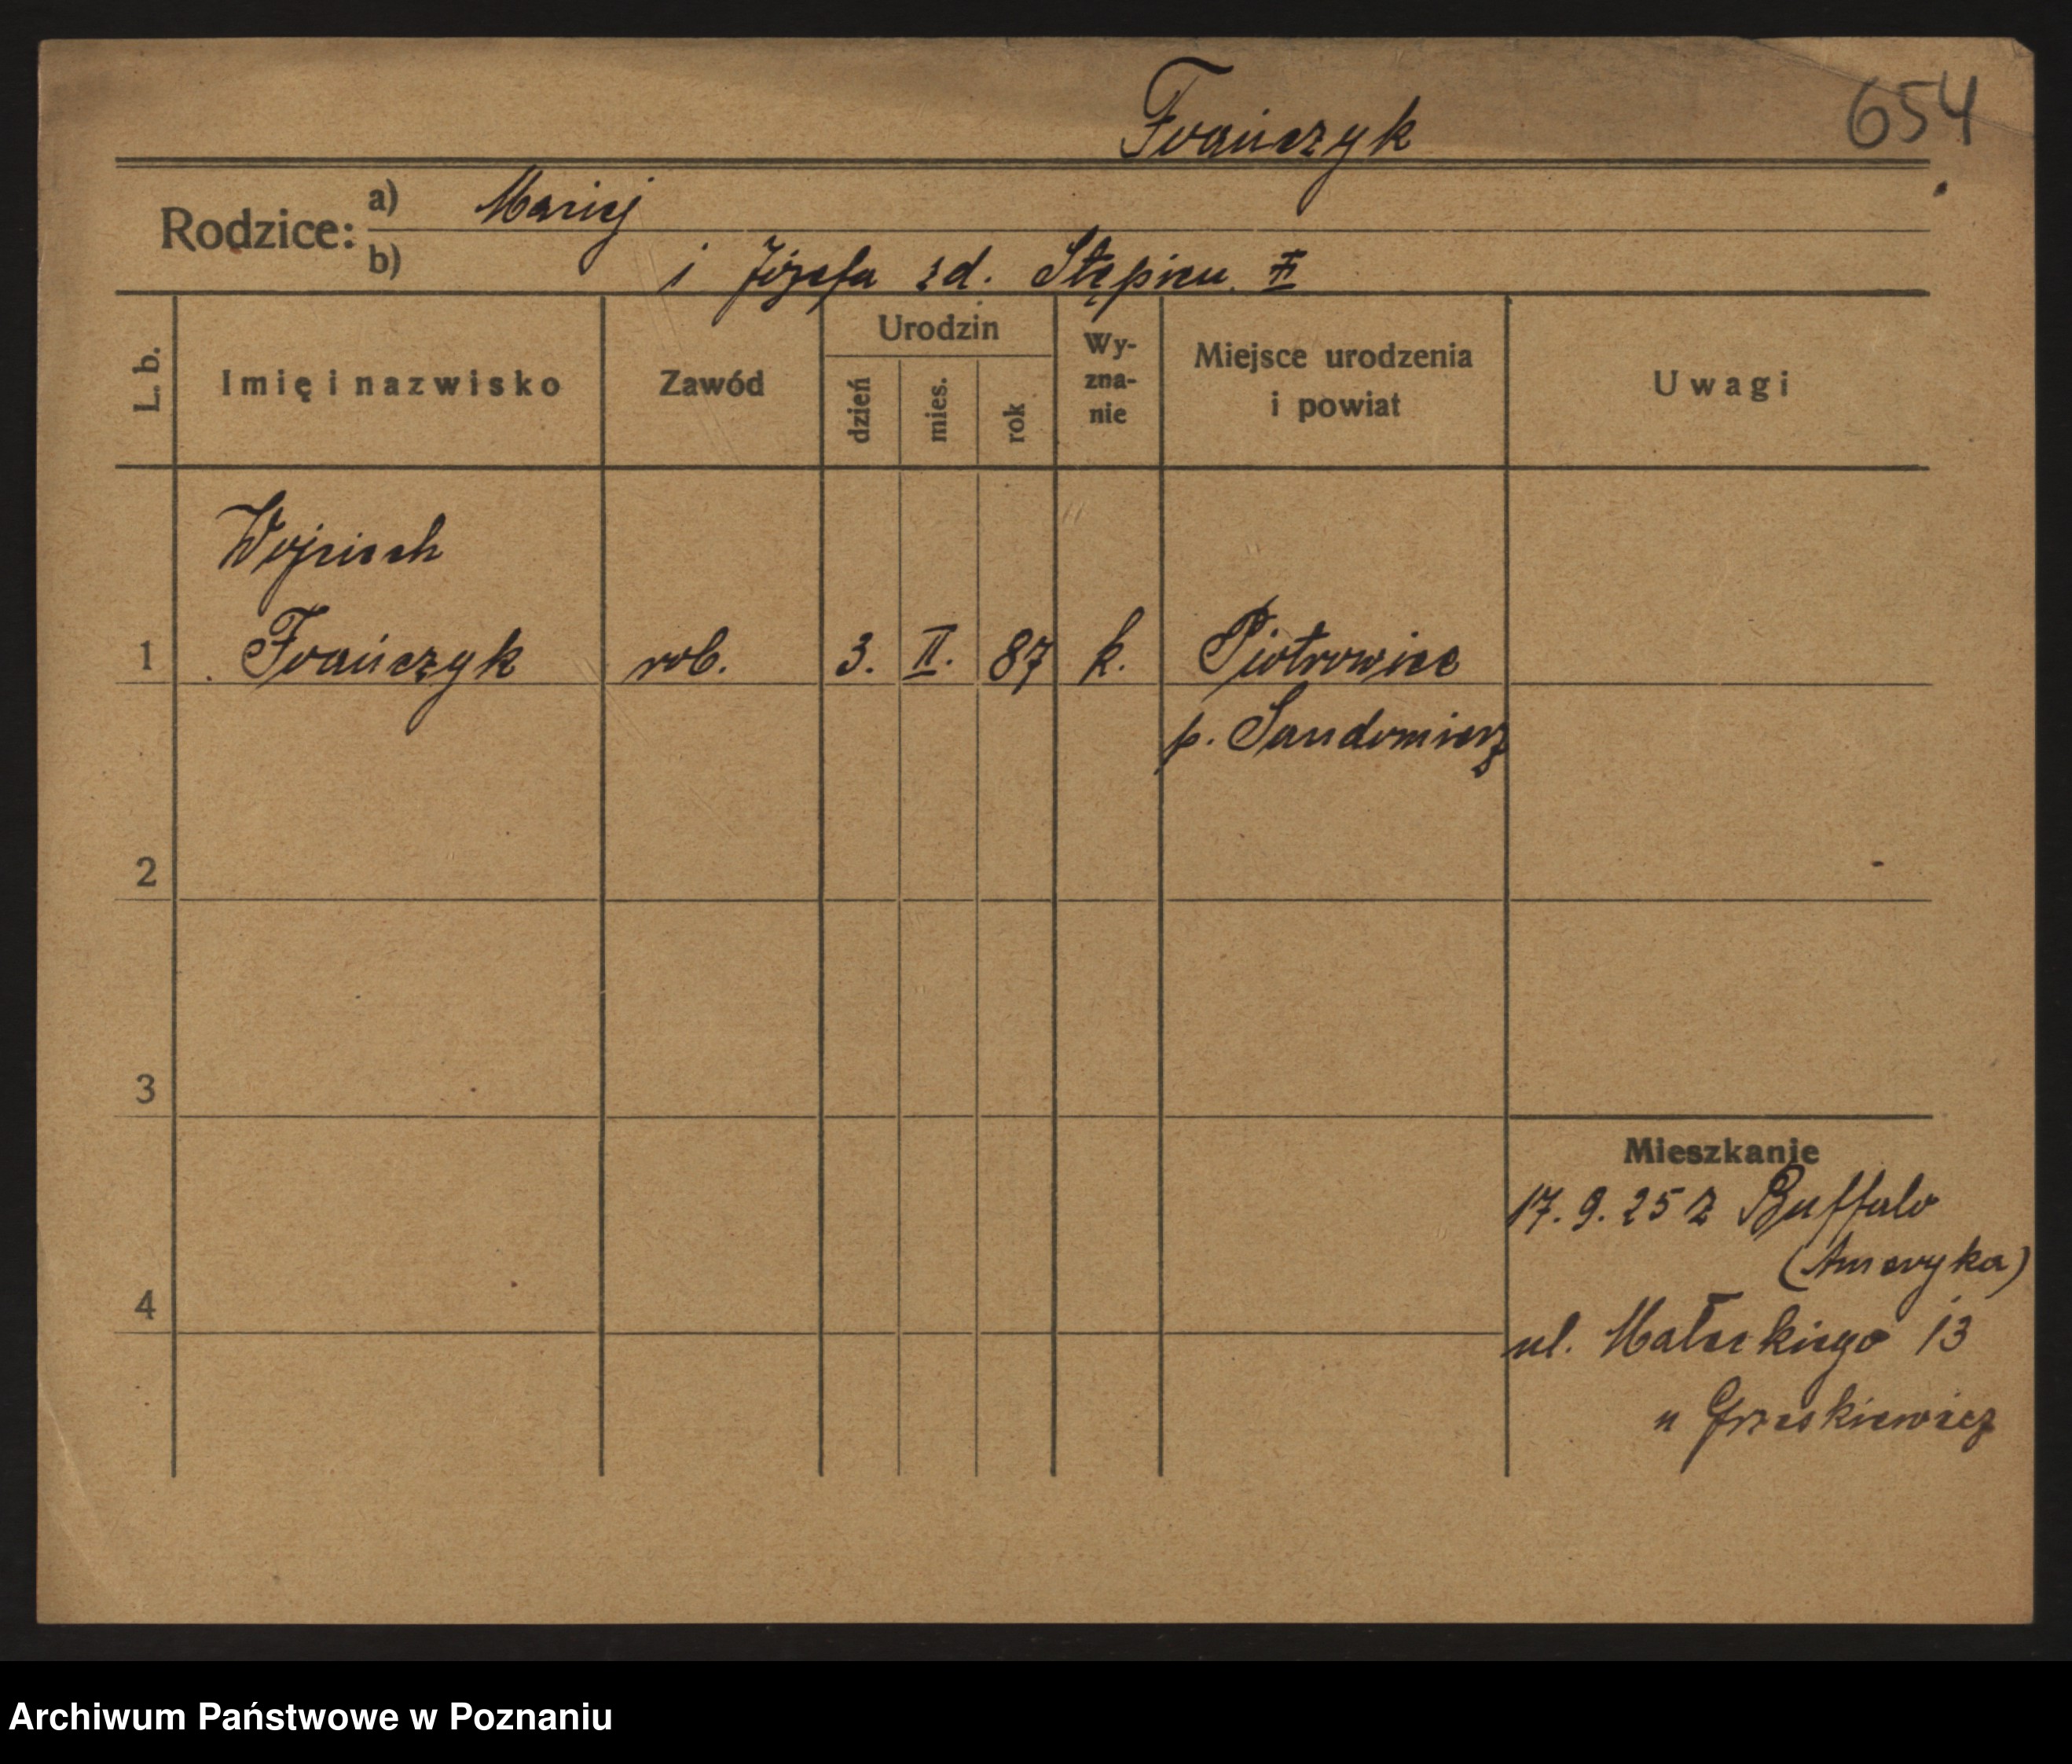 Frańczyk
654
Rodzice:
a) Maciej
b) i Józefa zd. Stępień
L. b.
Imię i nazwisko
Zawód
Urodzin
dzień
mies.
rok
Wy-
zna-
nie
Miejsce urodzenia
i powiat
Uwagi
Wojciech
1 Frańczyk rob. 3. II. 87 k. Piotrowice
p. Sandomierz
2
3
4
Mieszkanie
17. 9. 25 z Buffalo
(Ameryka)
ul. Małeckiego 13
u Grześkiewicz
Archiwum Państwowe w Poznaniu